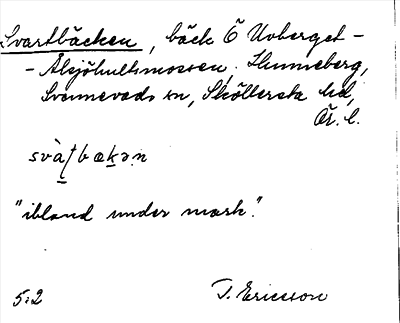 Svartbäcken, bäck Ö Uvberget -
- Älsjöhultsmossen, Hunneberg,
Svennevads sn, Sköllersta hd,
Ör. l.
svàʃt bækən
"ibland under mark."
5:2 T. Ericsson